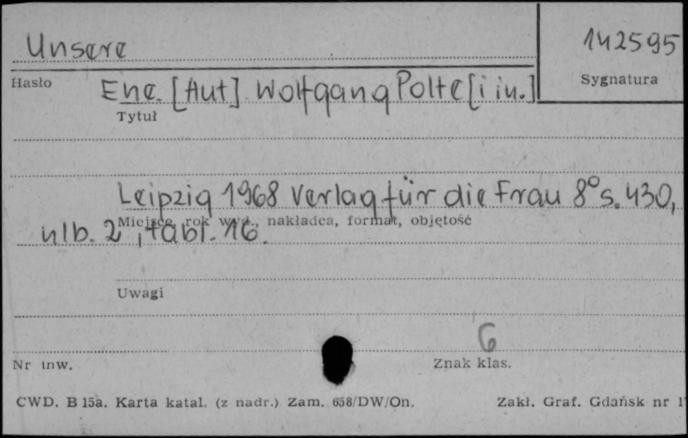 Unsere
142595
Hasło
Sygnatura
Ene. [Aut] Wolfgang Polte [i in.]
Tytuł
Leipzig 1968 Verlag für die Frau 8° s. 430,
Miejsce, rok wyd., nakładca, format, objętość
nlb. 2, tabl. 16.
Uwagi
6
Nr inw.
Znak klas.
CWD. B 15a. Karta katal. (z nadr.) Zam. 658/DW/On.
Zakł. Graf. Gdańsk nr 1